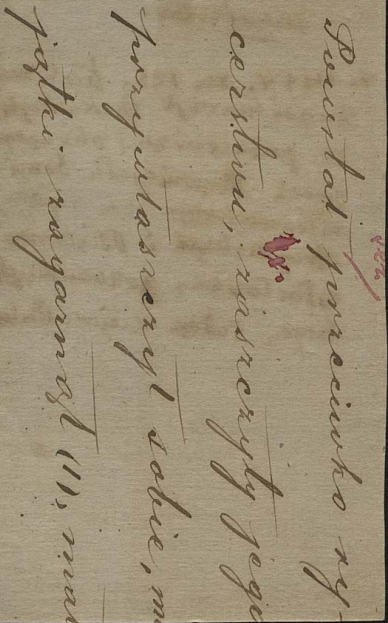 Powstał przeciwko ry-
cerstwu, zaszczyty jego
przywłaszczył sobie, m
jątki zagarnął (1), mia